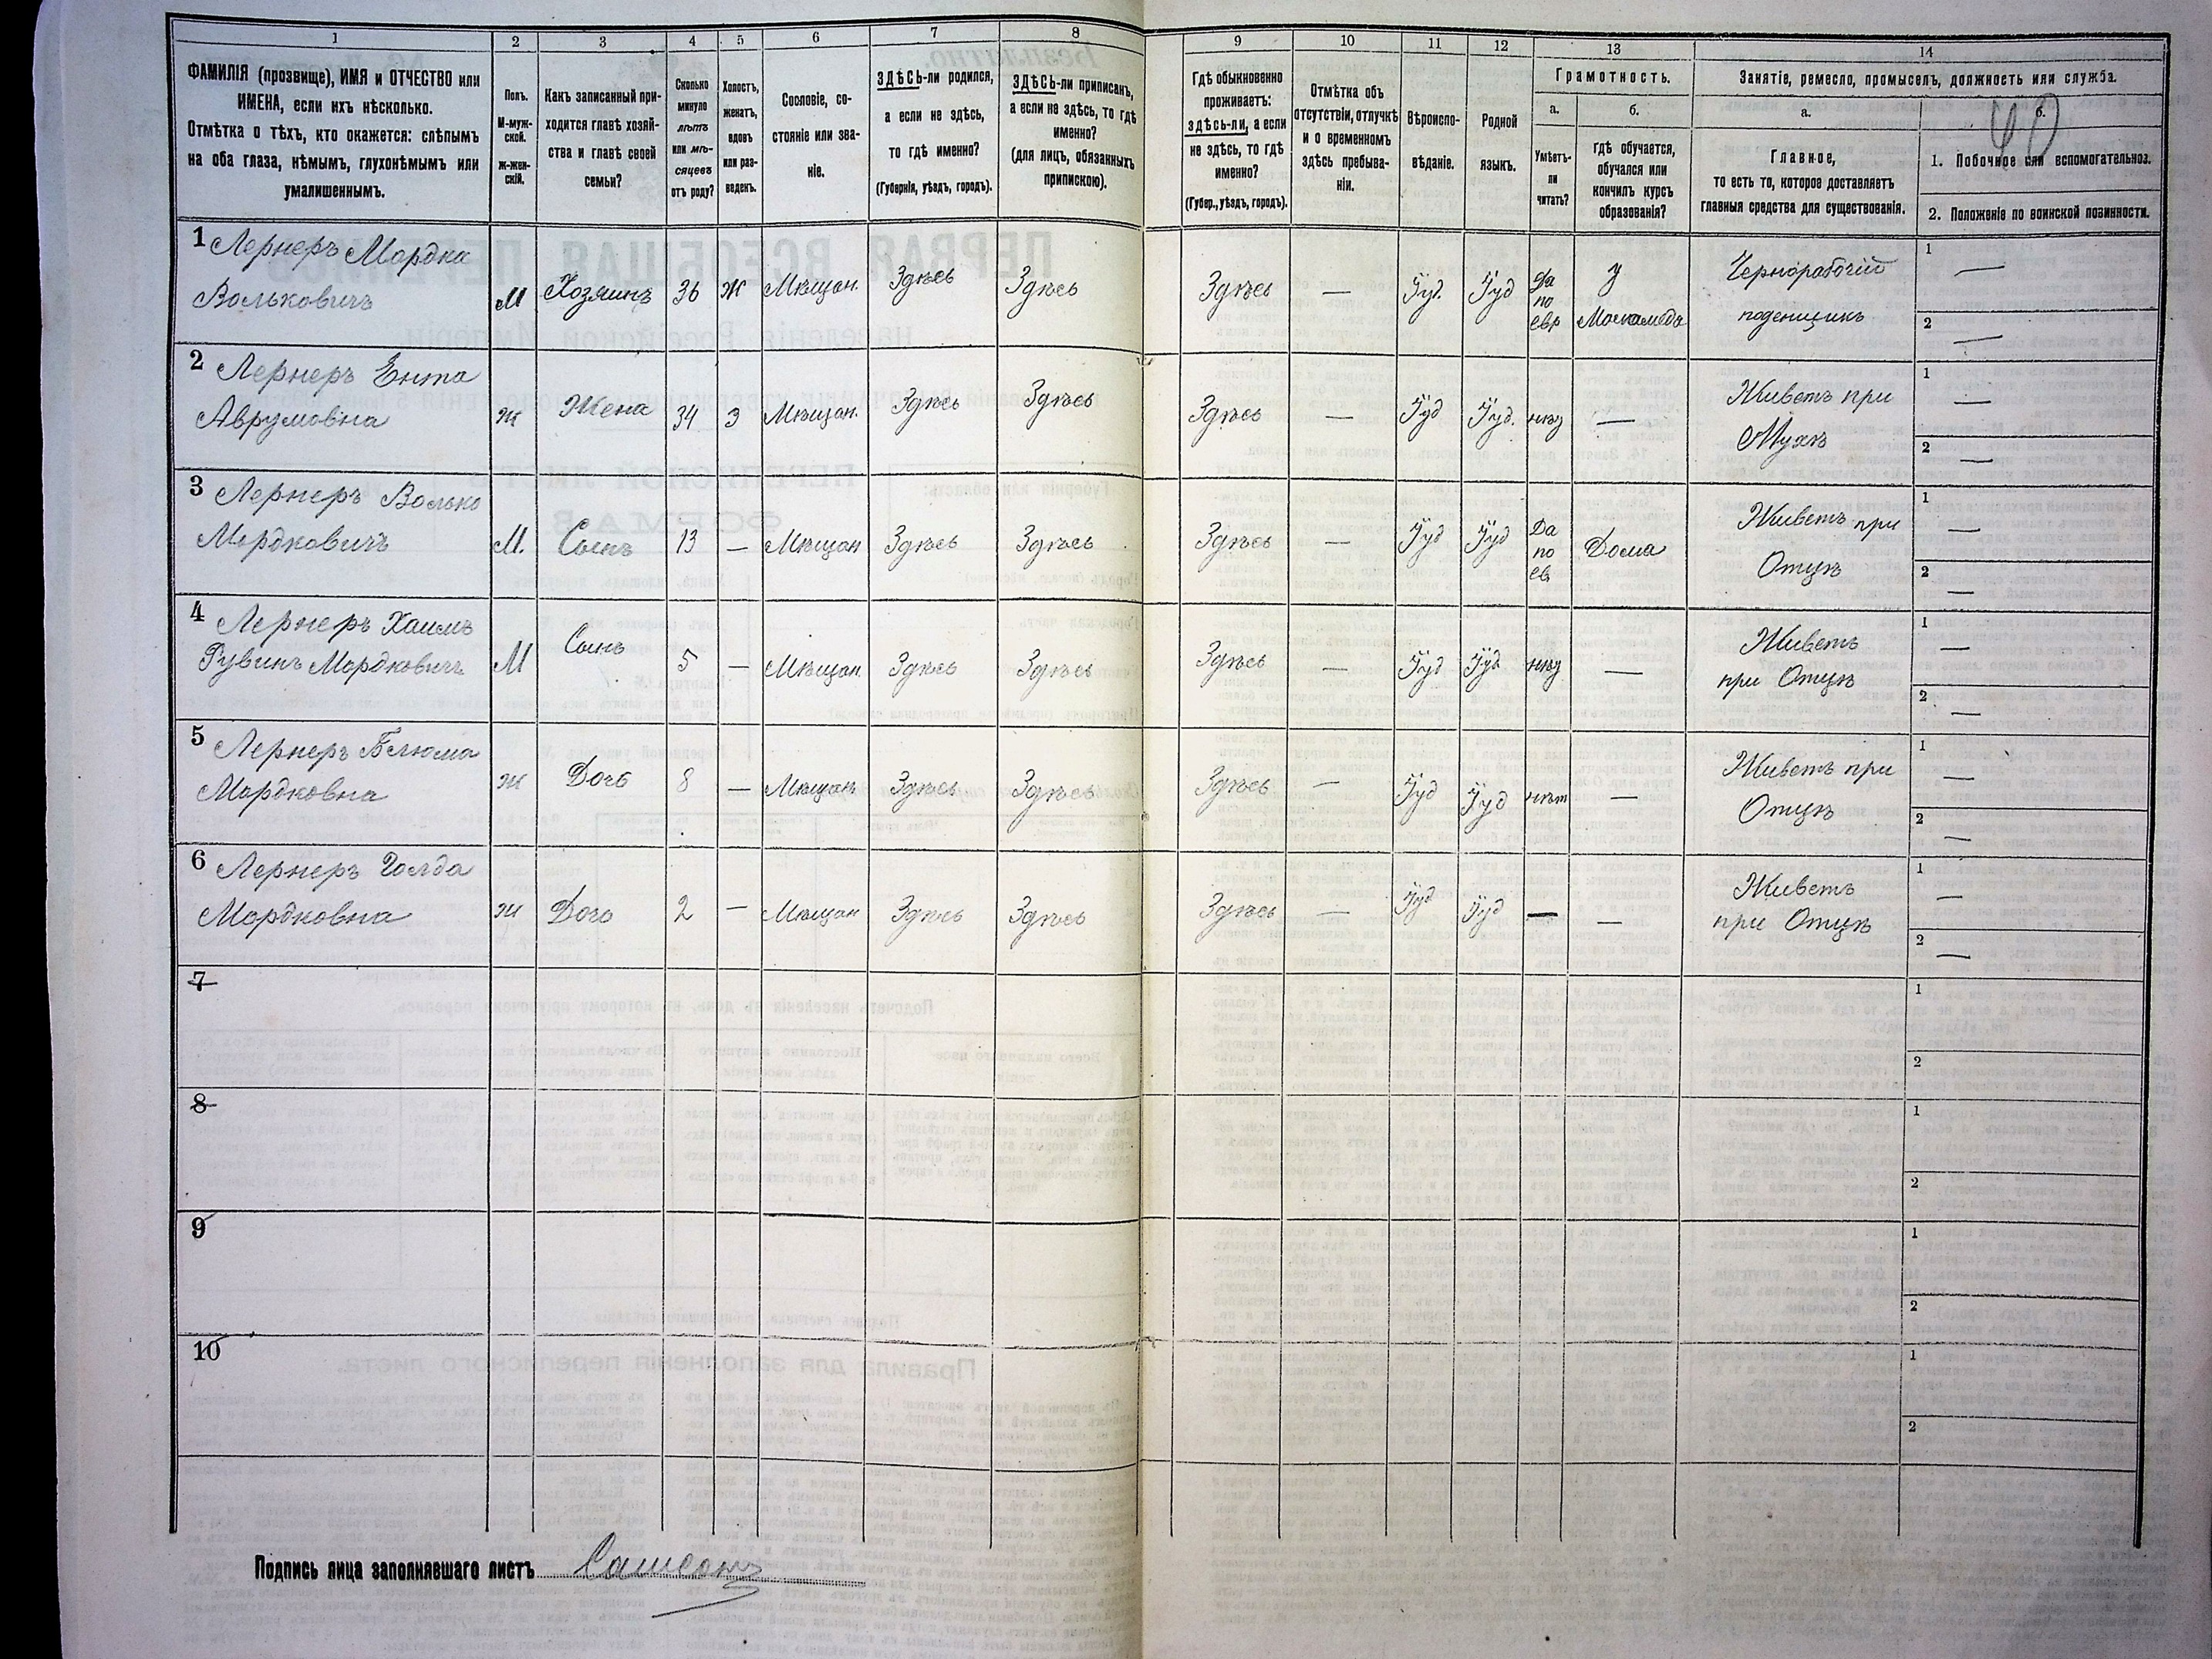 1 2 3 4 5 6 7 8 9 10 11 12 13 14
ФАМИЛІЯ (прозвище), ИМЯ и ОТЧЕСТВО или
ИМЕНА, если ихъ нѣсколько.
Отмѣтка о тѣхъ, кто окажется: слѣпымъ
на оба глаза, нѣмымъ, глухонѣмымъ или
умалишеннымъ.
Полъ.
М-муж-
ской.
ж-жен-
скій.
Какъ записанный при-
ходится главѣ хозяй-
ства и главѣ своей
семьи?
Сколько
минуло
лѣтъ
или мѣ-
сяцевъ
отъ роду?
Холостъ,
женатъ,
вдовъ
или раз-
веденъ.
Сословіе, со-
стояніе или зва-
ніе.
ЗДѢСЬ-ли родился,
а если не здѣсь,
то гдѣ именно?
(Губернія, уѣздъ, городъ).
ЗДѢСЬ-ли приписанъ,
а если не здѣсь, то гдѣ
именно?
(для лицъ, обязанныхъ
припискою).
Гдѣ обыкновенно
проживаетъ:
здѣсь-ли, а если
не здѣсь, то гдѣ
именно?
(Губер., уѣздъ, городъ).
Отмѣтка объ
отсутствіи, отлучкѣ
и о временномъ
здѣсь пребыва-
ніи.
Вѣроиспо-
вѣданіе.
Родной
языкъ.
Грамотность.
а.
Умѣетъ-
ли
читать?
б.
гдѣ обучается,
обучался или
кончилъ курсъ
образованія?
Занятіе, ремесло, промыселъ, должность или служба.
а.
Главное,
то есть то, которое доставляетъ
главныя средства для существованія.
б.
40
1. Побочное или вспомогательноэ.
2. Положеніе по воинской повинности.
1 Лернеръ Мордко
Вольковичъ
М Хозяинъ 36 Ж Мѣщан. Здѣсь Здѣсь Здѣсь — Іуд. Іуд
Да
по
евр
у
Чернорабочій
поденщикъ
1 —
2 —
2 Лернеръ Ента
Аврумовна
Ж Жена 34 З Мѣщан. Здѣсь Здѣсь Здѣсь — Іуд Іуд. —
Живетъ при
Мужѣ
1 —
2 —
3 Лернеръ Волько
Мордковичъ
М. Сынъ 13 — Мѣщан Здѣсь Здѣсь Здѣсь — Іуд Іуд
Да
по
ев
Дома
Живетъ при
Отцѣ
1 —
2 —
4 Лернеръ Хаимъ
Рувинъ Мордковичъ
М Сынъ 5 — Мѣщан. Здѣсь Здѣсь Здѣсь — Іуд Іуд —
Живетъ
при Отцѣ
1 —
2 —
5 Лернеръ Блюма
Мордковна
Ж Дочь 8 — Мѣщан Здѣсь Здѣсь Здѣсь — Іуд Іуд нѣт —
Живетъ при
Отцѣ
1 —
2 —
6 Лернеръ Голда
Мордковна
Ж Дочь 2 — Мѣщан Здѣсь Здѣсь Здѣсь — Іуд Іуд — —
Живетъ
при Отцѣ
1 —
2 —
7
1
2
8
1
2
9
1
2
10
1
2
Подпись лица заполнявшаго листъ